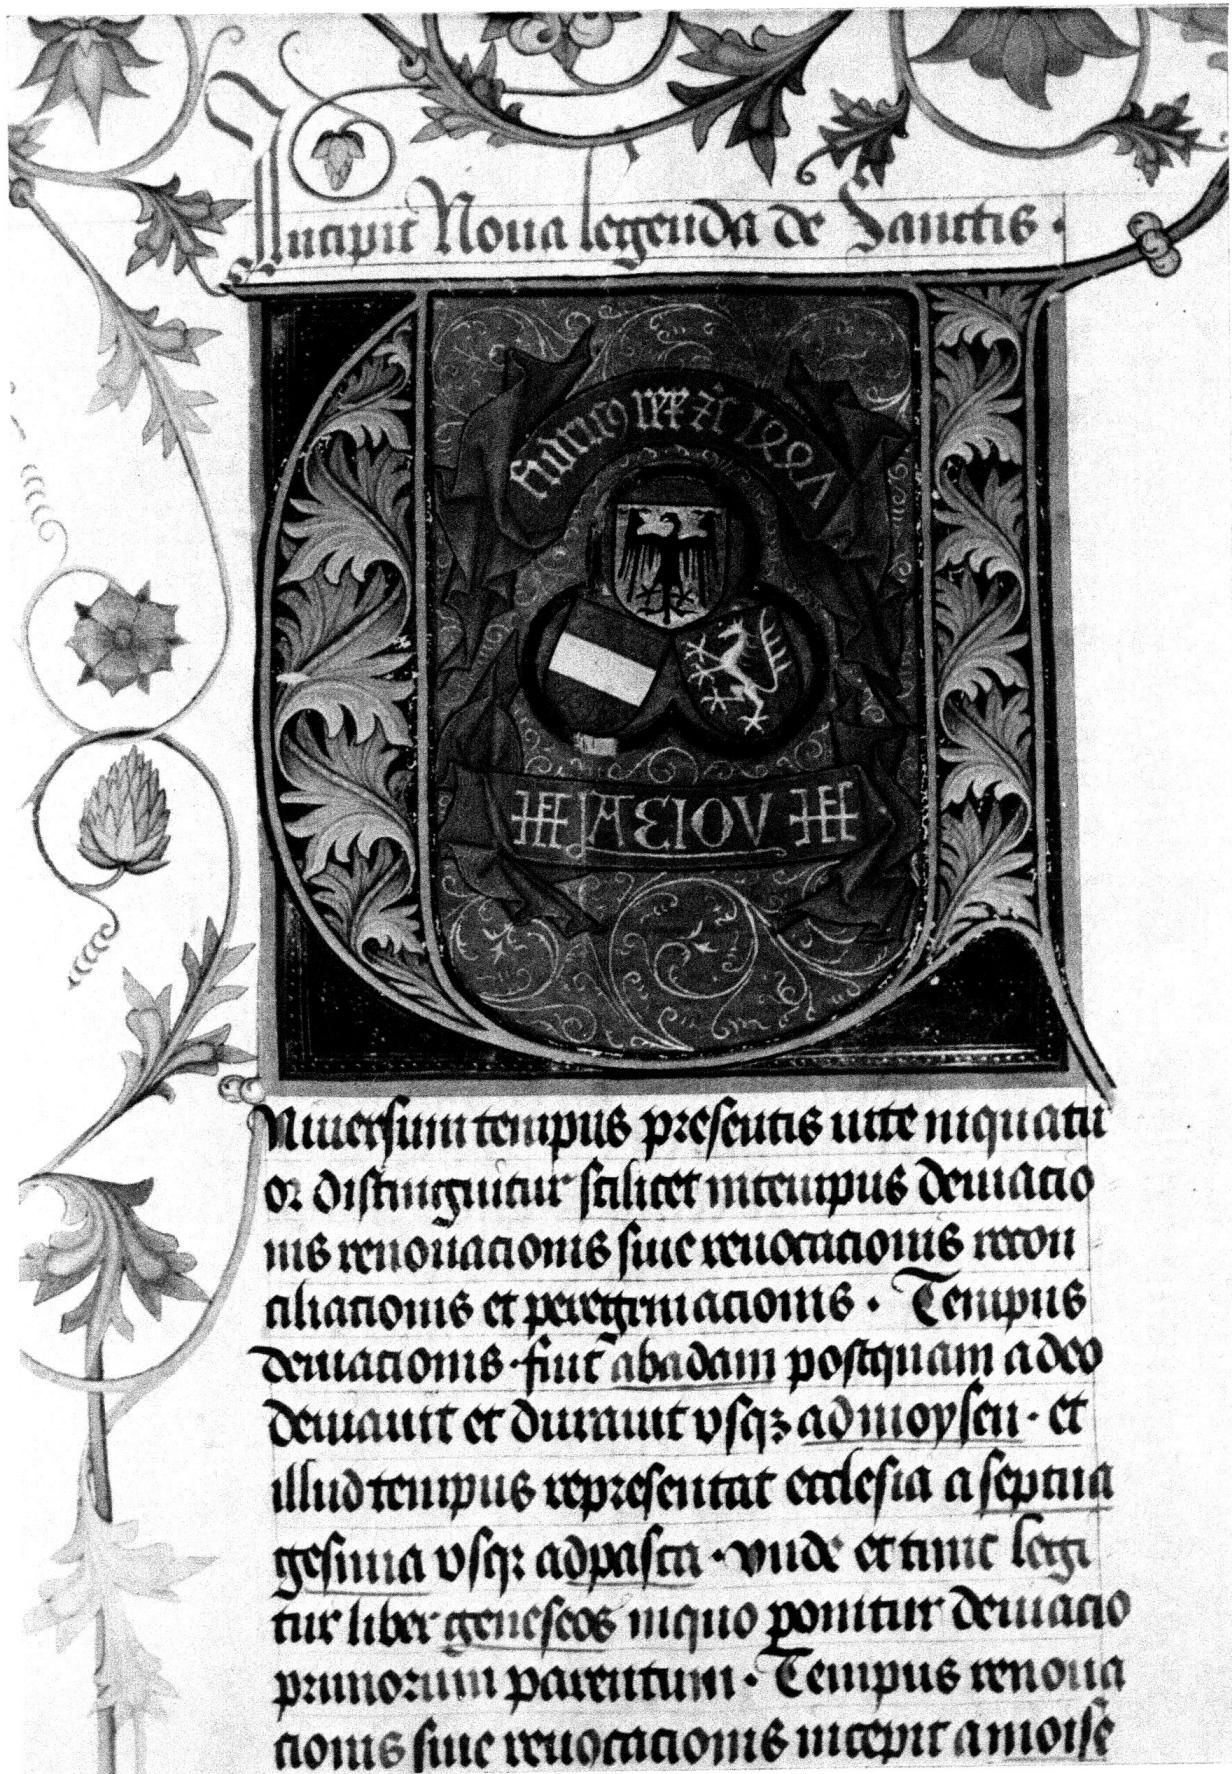 Incipit Noua legenda de Sanctis ·
fridricꝰ rex ⁊c̄ 1447
AEIOV
Niuersum tempus presentis uite inquatu
or distinguitur scilicet intempus deuiacio
nis renouacionis siue reuocacionis recon
ciliacionis et peregrinacionis · Tempus
deuiacionis · fuit abadam postquam adeo
deuiauit et durauit vsqꝫ admoysen · et
illud tempus representat ecclesia a septua
gesima vsqꝫ adpasca · vnde et tunc legi
tur liber geneseos inquo ponitur deuiacio
primorum parentum · Tempus renoua
cionis siue reuocacionis incepit amoise